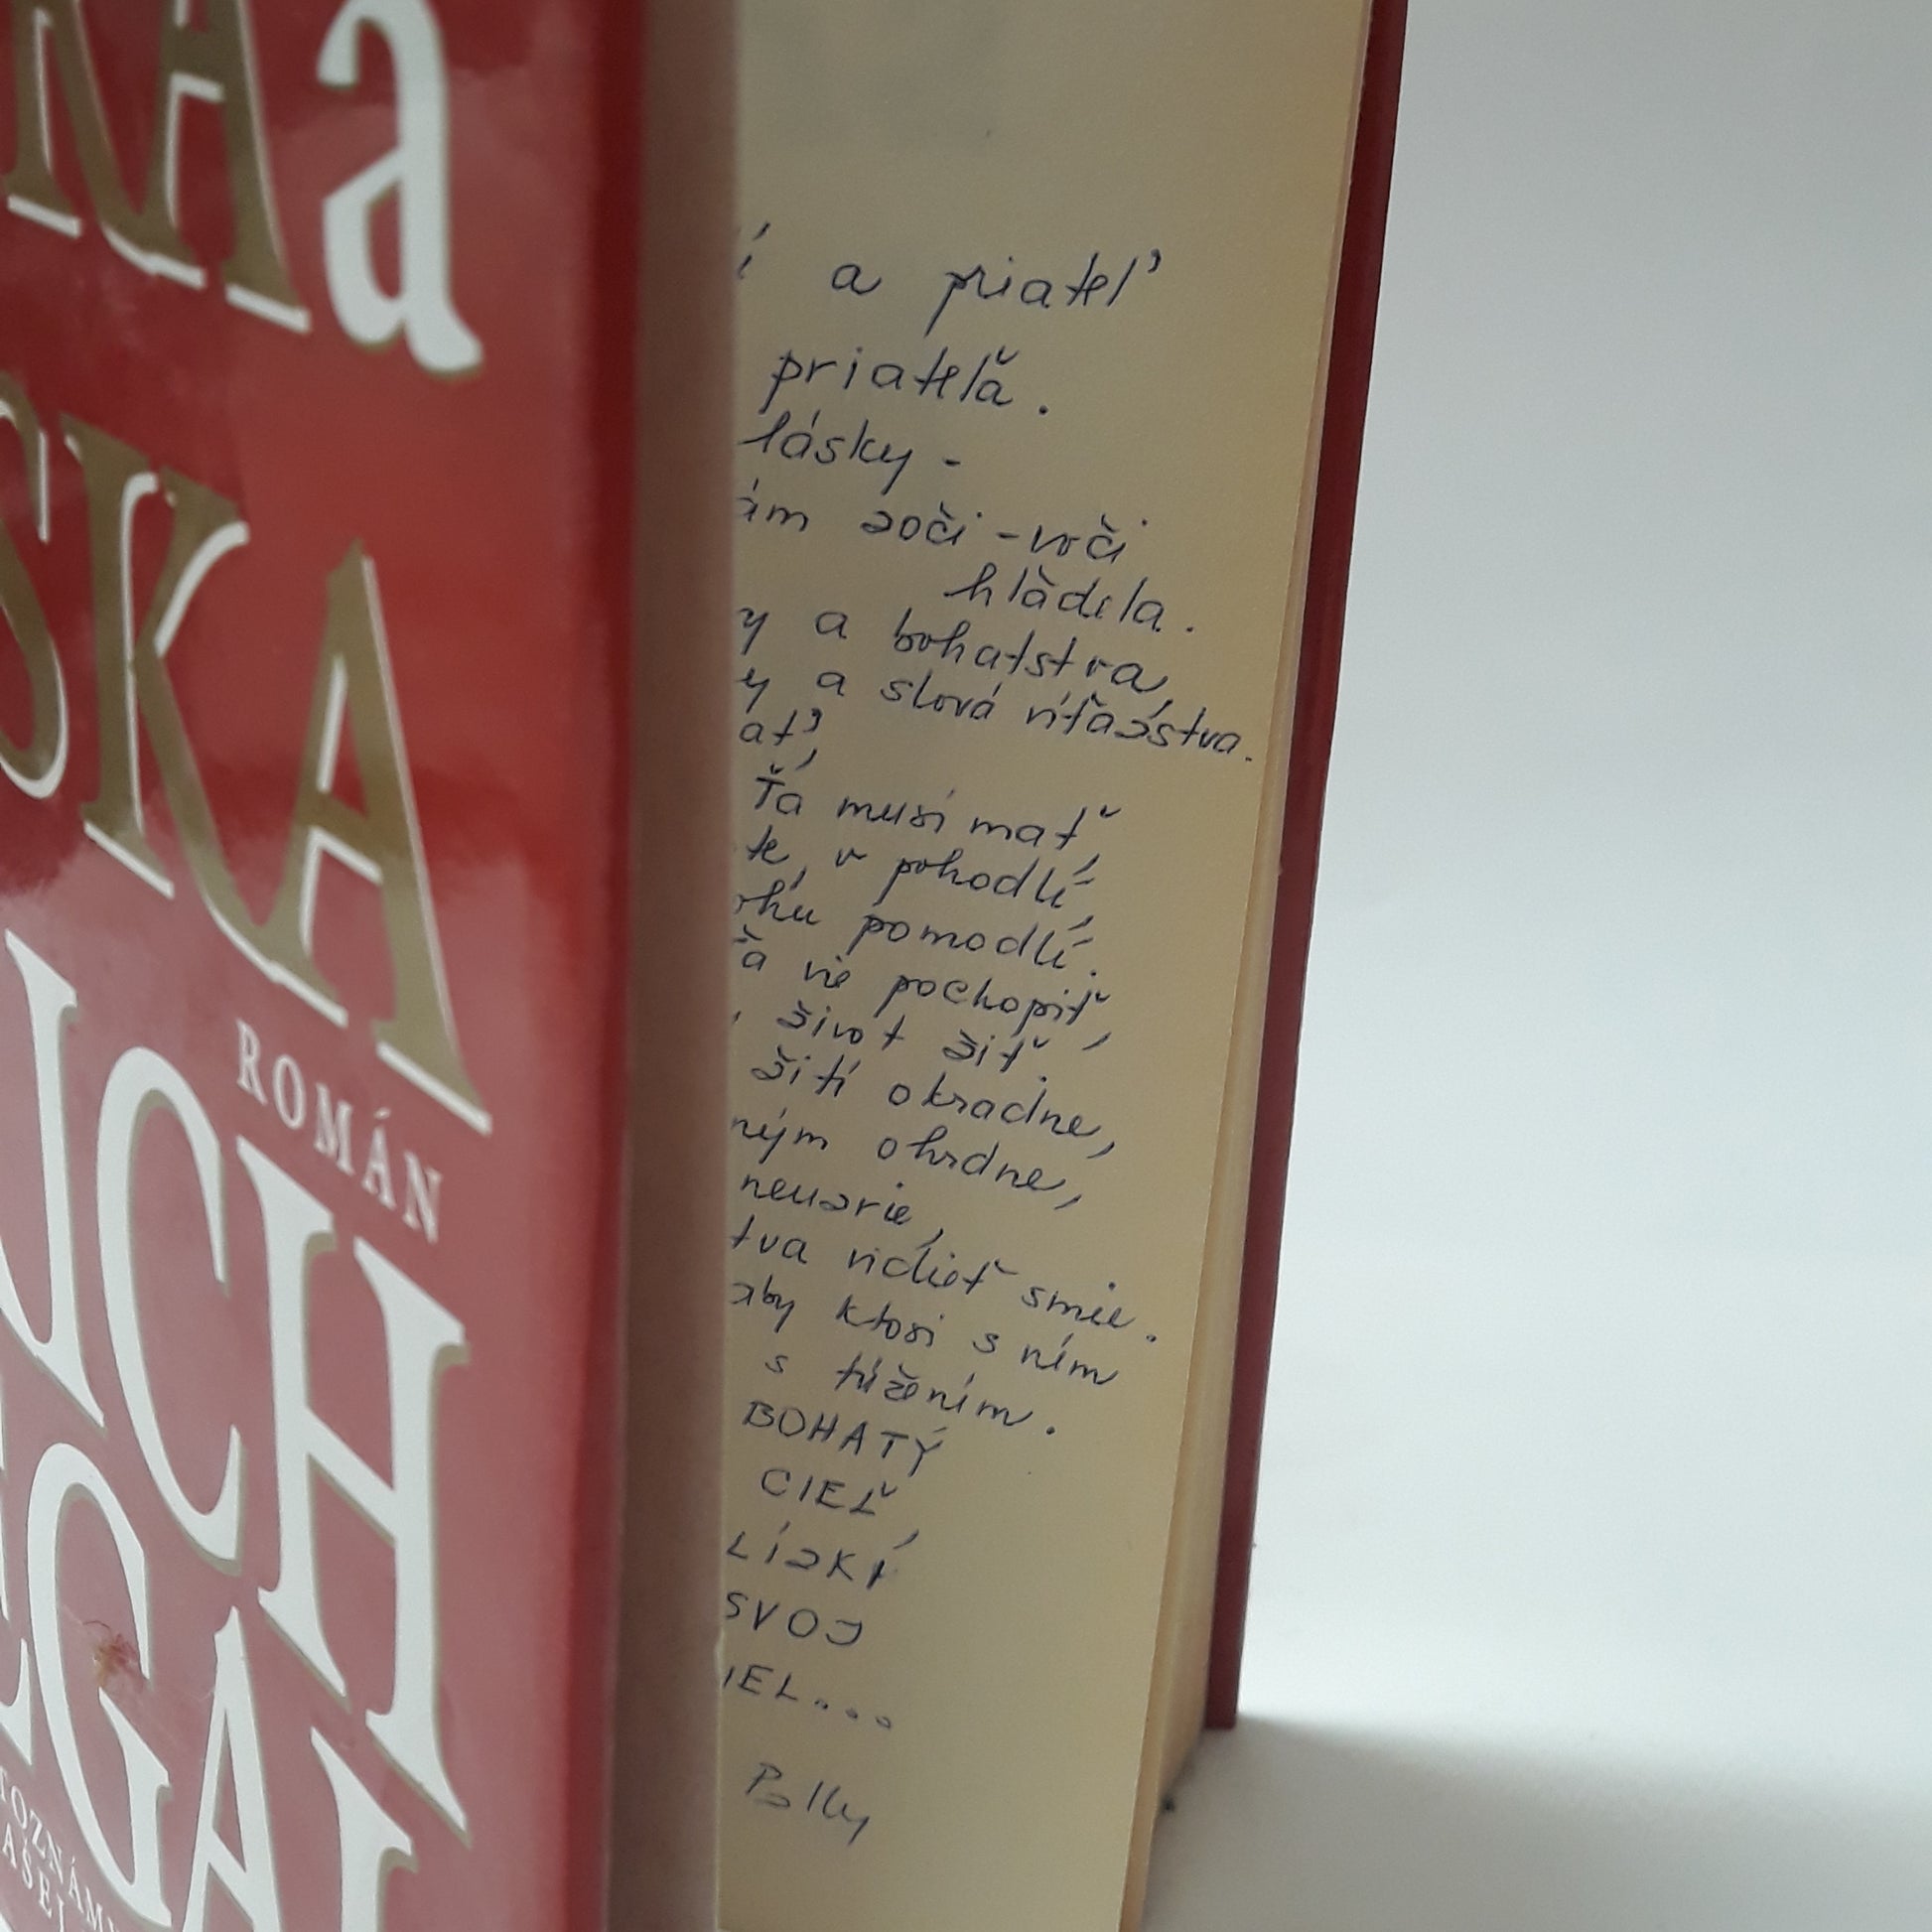 KA a
SKA
ROMÁN
UCH
GA
í a priateľ
priateľa.
lásky -
ám zoči-voči
hľadela.
y a bohatstva,
y a slová víťazstva.
ať,
Ťa musí mať,
te, v pohodlí,
ohu pomodlí.
ťa vie pochopiť,
život žiť.
žití okradne,
ným ohrdne,
neuzrie,
tva vidieť smie.
aby ktosi s ním
s túžením.
BOHATÝ
CIEĽ,
LÍZKÍ
SVOJ
IEL...
Polly